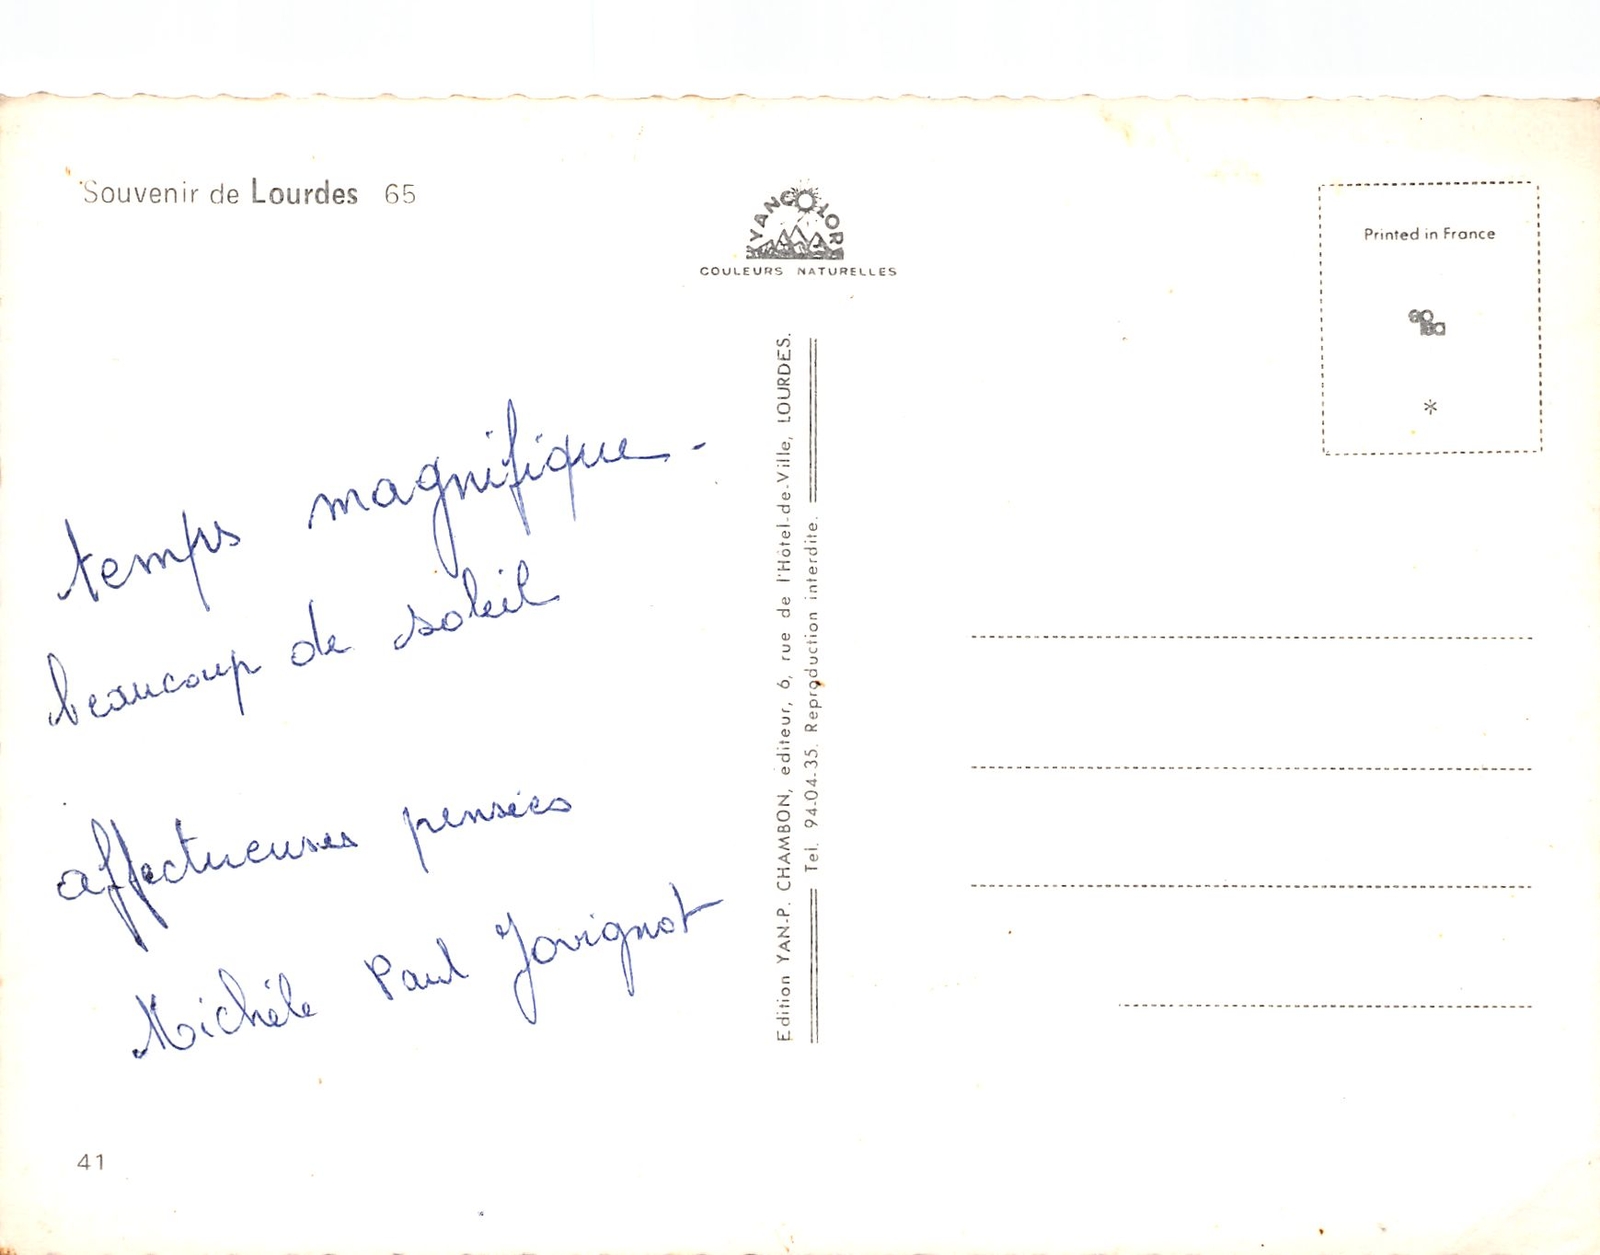 Souvenir de Lourdes 65
YANCOLOR
COULEURS NATURELLES
Printed in France
*
temps magnifique -
beaucoup de soleil
affectueuses pensées
Michèle Paul Jovignot
41
Edition YAN.-P. CHAMBON, éditeur, 6, rue de l'Hôtel-de-Ville, LOURDES.
Tel. 94-04-35. Reproduction interdite.